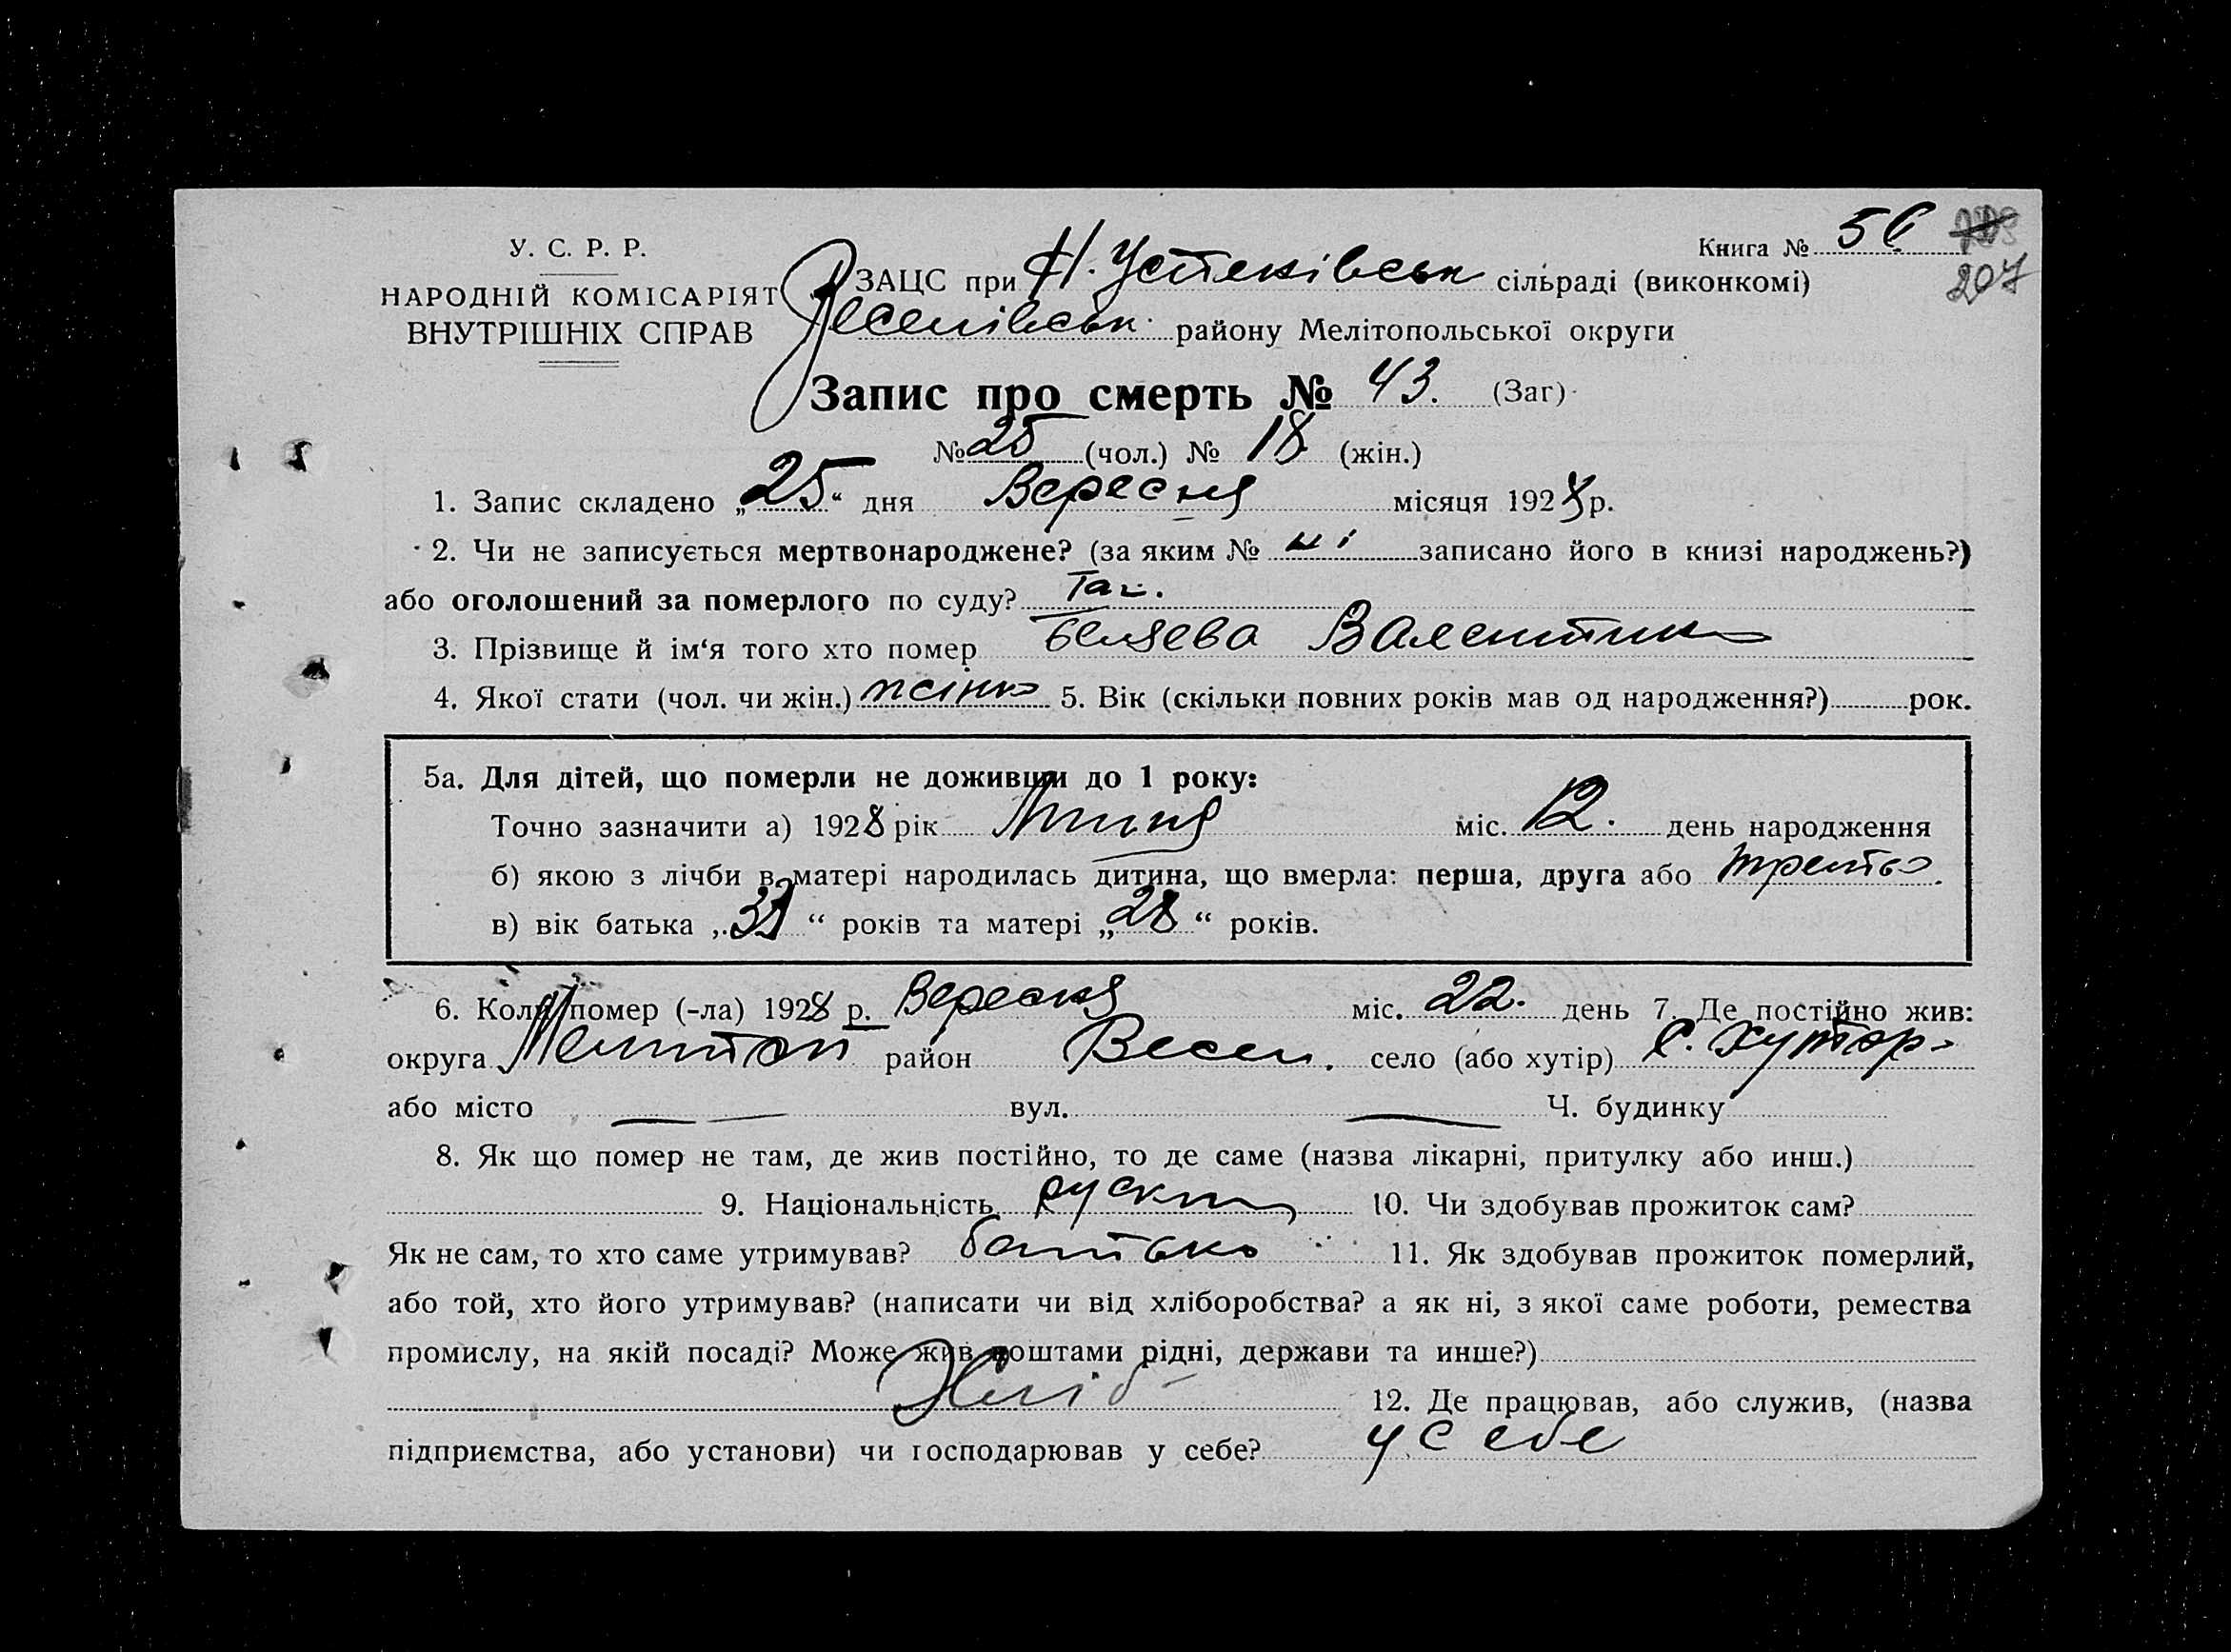 У. С. Р. Р.
НАРОДНІЙ КОМІСАРІЯТ
ВНУТРІШНІХ СПРАВ
Книга № 56
207
ЗАЦС при Н. Успеківськ сільраді (виконкомі)
Веселівськ. району Мелітопольської округи
Запис про смерть № 43. (Заг)
№ 25 (чол.) № 18 (жін.)
1. Запис складено „25“ дня Вересня місяця 1928 р.
2. Чи не записується мертвонароджене? (за яким № ні записано його в книзі народжень?)
або оголошений за померлого по суду? Так.
3. Прізвище й ім‘я того хто помер Беляева Валентина
4. Якої стати (чол. чи жін.) жінка 5. Вік (скільки повних років мав од народження?) рок.
5а. Для дітей, що померли не доживши до 1 року:
Точно зазначити а) 1928 рік Липня міс. 12. день народження
б) якою з лічби в матері народилась дитина, що вмерла: перша, друга або третья.
в) вік батька „ “ років та матері „28“ років.
6. Коли помер (-ла) 1928 р. Вересня міс. 22. день 7. Де постійно жив:
округа Мелитоп район Весел. село (або хутір) хутор
або місто — вул. — Ч. будинку
8. Як що помер не там, де жив постійно, то де саме (назва лікарні, притулку або инш.)
9. Національність руский 10. Чи здобував прожиток сам?
Як не сам, то хто саме утримував? батько 11. Як здобував прожиток померлий,
або той, хто його утримував? (написати чи від хліборобства? а як ні, з якої саме роботи, ремества
промислу, на якій посаді? Може жив коштами рідні, держави та инше?)
Хліб 12. Де працював, або служив, (назва
підприємства, або установи) чи господарював у себе? у себе